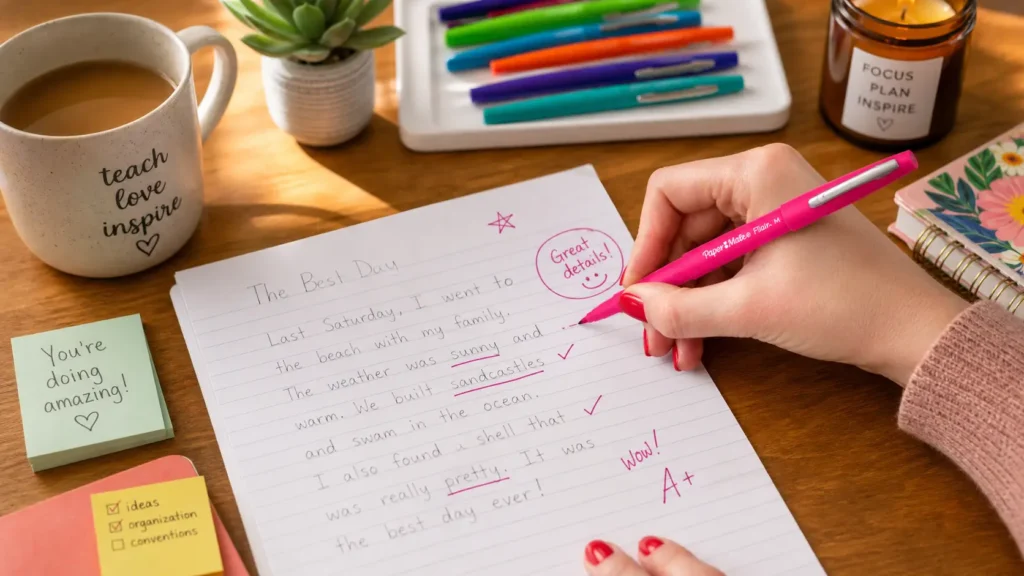 teach
love
inspire
FOCUS
PLAN
INSPIRE
Paper Mate Flair. M
The Best Day
Great
details!
Last Saturday, I went to
the beach with my family.
The weather was sunny and
warm. We built sandcastles
and swam in the ocean.
I also found a shell that
was really pretty. It was
the best day ever!
Wow!
A+
You're
doing
amazing!
ideas
organization
conventions